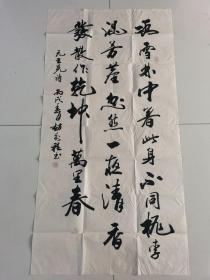 冰雪林中著此身不同桃李
混芳塵忽然一夜清香
發散作乾坤萬里春
元王冕诗 丙戌春月 书